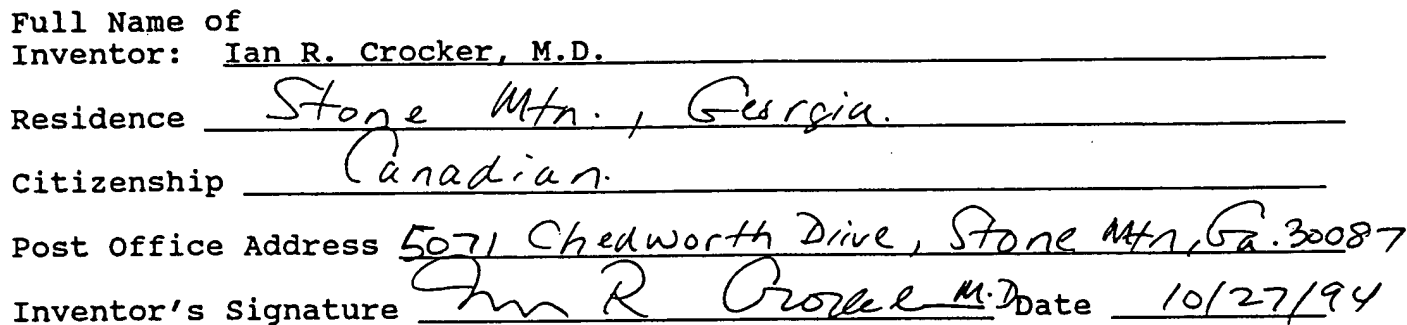 Full Name of
Inventor: Ian R. Crocker, M.D.
Residence Stone Mtn., Georgia.
Citizenship Canadian.
Post Office Address 5071 Chedworth Drive, Stone Mtn, Ga. 30087
Inventor's Signature Ian R Crocker M.D Date 10/27/94